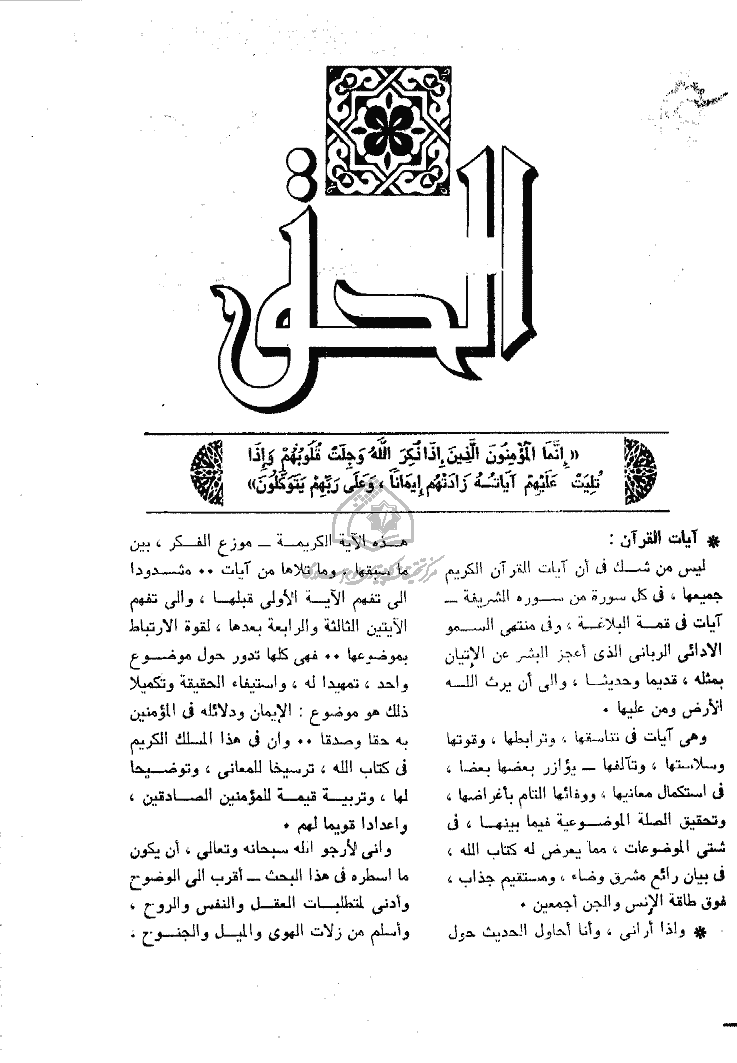 الحق
«إِنَّمَا الْمُؤْمِنُونَ الَّذِينَ إِذَا ذُكِرَ اللَّهُ وَجِلَتْ قُلُوبُهُمْ وَإِذَا
تُلِيَتْ عَلَيْهِمْ آيَاتُهُ زَادَتْهُمْ إِيمَانًا ، وَعَلَى رَبِّهِمْ يَتَوَكَّلُونَ»
* آيات القرآن :
ليس من شك فى أن آيات القرآن الكريم
جميعها ، فى كل سورة من سوره الشريفة ــ
آيات فى قمة البلاغة ، وفى منتهى السمو
الادائى الربانى الذى أعجز البشر عن الإتيان
بمثله ، قديما وحديثا ، والى أن يرث الله
الأرض ومن عليها ٠
وهى آيات فى تناسقها ، وترابطها ، وقوتها
وسلاستها ، وتآلفها ــ يؤازر بعضها بعضا ،
فى استكمال معانيها ، ووفائها التام بأغراضها ،
وتحقيق الصلة الموضوعية فيما بينها ، فى
شتى الموضوعات ، مما يعرض له كتاب الله ،
فى بيان رائع مشرق وضاء ، ومستقيم جذاب ،
فوق طاقة الإنس والجن أجمعين ٠
* ولذا أرانى ، وأنا أحاول الحديث حول
هذه الآية الكريمة ــ موزع الفكر ، بين
ما سبقها ، وما تلاها من آيات ٠٠ مشدودا
الى تفهم الآية الأولى قبلها ، والى تفهم
الآيتين الثالثة والرابعة بعدها ، لقوة الارتباط
بموضوعها ٠٠ فهى كلها تدور حول موضوع
واحد ، تمهيدا له ، واستيفاء الحقيقة وتكميلا
ذلك هو موضوع : الإيمان ودلائله فى المؤمنين
به حقا وصدقا ٠٠ وان فى هذا المسلك الكريم
فى كتاب الله ، ترسيخا للمعانى ، وتوضيحا
لها ، وتربية قيمة للمؤمنين الصادقين ،
واعدادا قويما لهم ٠
وانى لأرجو الله سبحانه وتعالى ، أن يكون
ما اسطره فى هذا البحث ــ أقرب الى الوضوح
وأدنى لمتطلبات العقل والنفس والروح ،
وأسلم من زلات الهوى والميل والجنوح ،